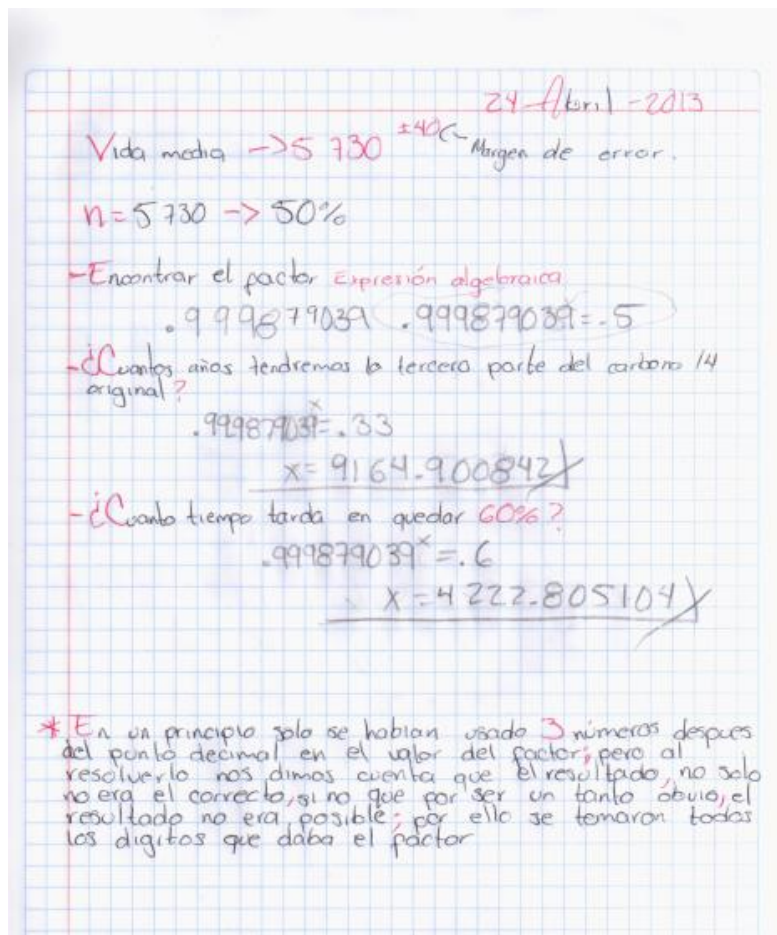 24 Abril - 2013
Vida media -> 5 730 ±40 <- Margen de error.
n = 5 730 -> 50%
- Encontrar el factor Expresión algebraica
.999879039 .999879039ˣ = .5
- ¿Cuantos años tendremos la tercera parte del carbono 14
original?
.999879039ˣ = .33
x = 9164.900842
- ¿Cuanto tiempo tarda en quedar 60%?
.999879039ˣ = .6
x = 4222.805104
* En un principio solo se habian usado 3 números despues
del punto decimal en el valor del factor; pero al
resolverlo nos dimos cuenta que el resultado, no solo
no era el correcto, si no que por ser un tanto obvio, el
resultado no era posible; por ello se tomaron todos
los digitos que daba el factor